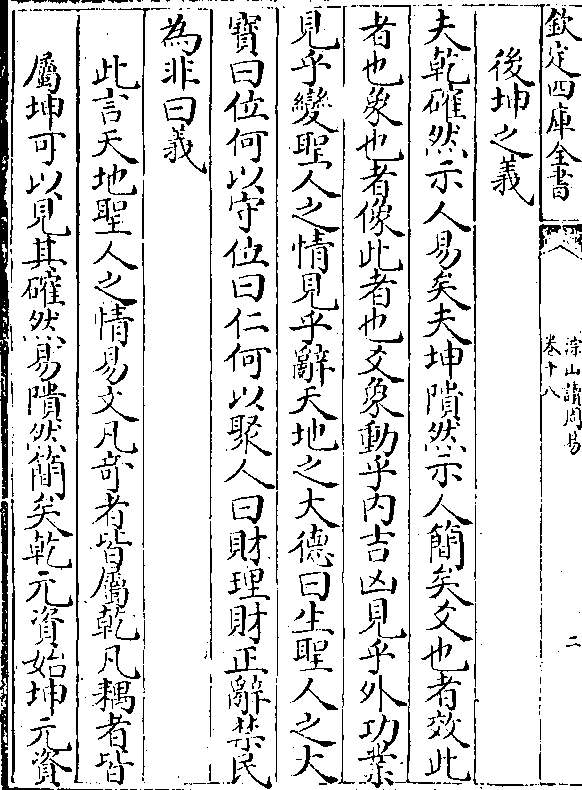 欽定四庫全書
淙山讀周易
卷十八
二
後坤之義
夫乾確然示人易矣夫坤隤然示人簡矣爻也者效此
者也象也者像此者也爻象動乎内吉凶見乎外功業
見乎變聖人之情見乎辭天地之大德曰生聖人之大
寳曰位何以守位曰仁何以聚人曰財理財正辭禁民
為非曰義
此言天地聖人之情易文凡竒者皆屬乾凡耦者皆
屬坤可以見其確然易隤然簡矣乾元資始坤元資